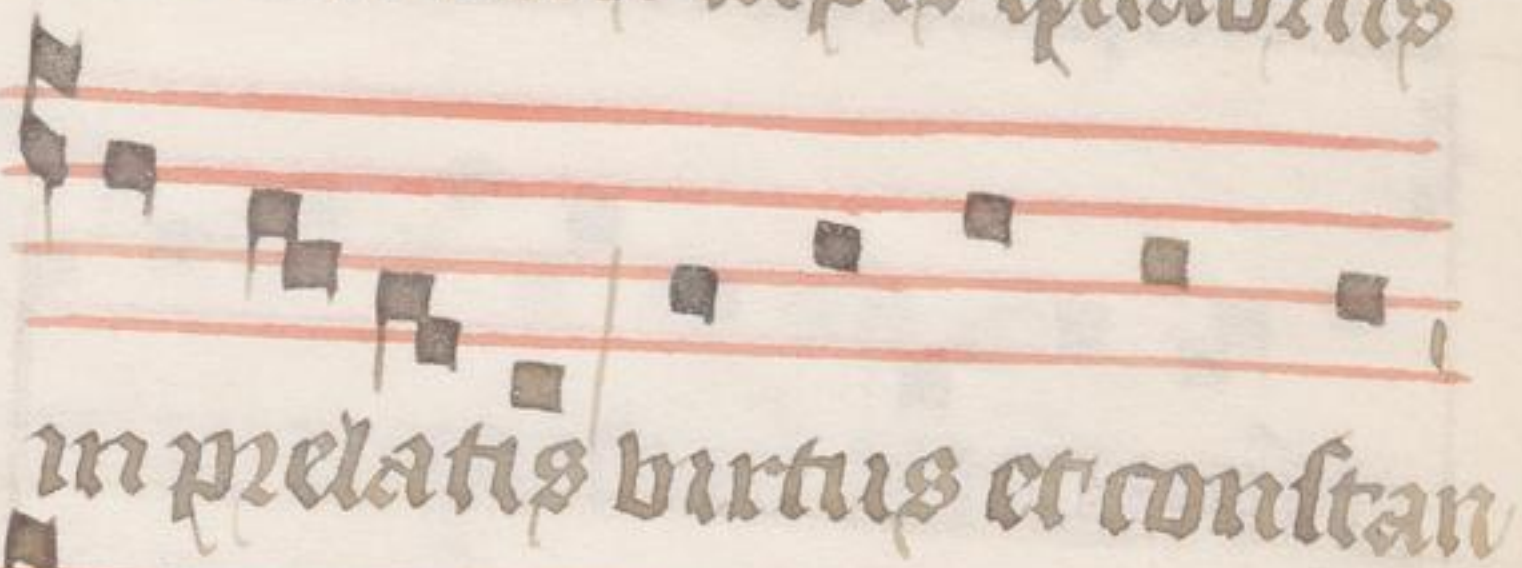 in prelatis virtus et constan